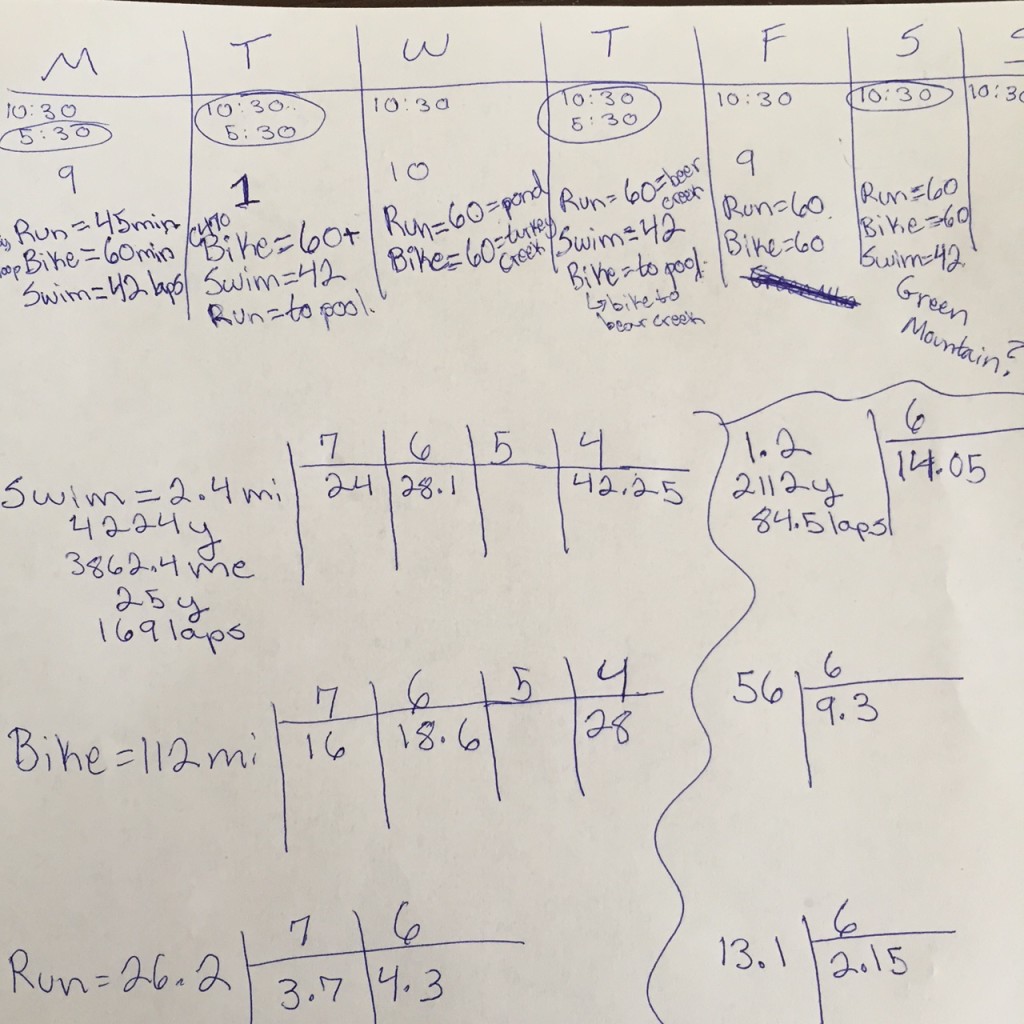 M T W T F S S
10:30 10:30 10:30 10:30 10:30 10:30 10:30
5:30 5:30 5:30
9 1 10 9
Run=45min
Bike=60min
Swim=42 laps
Bike=60+
Swim=42
Run=to pool.
Run=60=pond
Bike=60=turkey creek
Run=60=bear creek
Swim=42
Bike=to pool.
↳bike to
bear creek
Run=60.
Bike=60
Run=60
Bike=60
Swim=42
Green
Mountain?
Swim=2.4mi
4224y
3862.4me
25y
169laps
7 6 5 4
24 28.1 42.25
1.2
2112y
84.5laps
6
14.05
Bike=112mi
7 6 5 4
16 18.6 28
56 6
9.3
Run=26.2
7 6
3.7 4.3
13.1 6
2.15